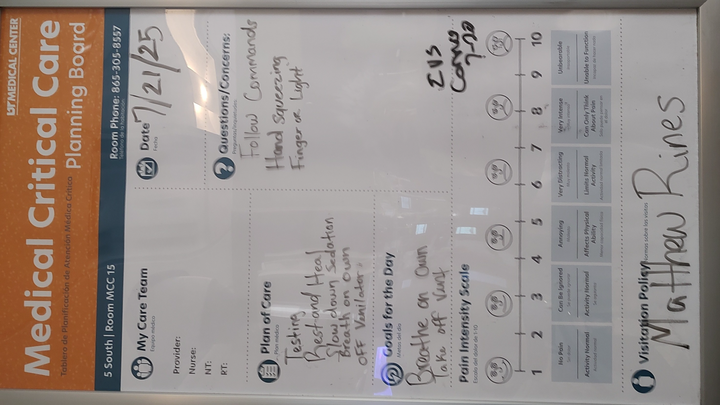 UT MEDICAL CENTER
Medical Critical Care
Tablero de Planificación de Atención Médica Crítica
Planning Board
5 South | Room MCC 15
Room Phone: 865-305-8557
My Care Team
Provider:
Nurse:
NT:
RT:
Date
7/21/25
Questions/Concerns:
Follow Commands
Hand squeezing
Finger or Light
Plan of Care
Testing
Rest and Heal
Slow down Sedation
Breath on own
OFF Venilator
Goals for the Day
Breathe on own
Take off Vent
EVS
Comes
7-20
Pain Intensity Scale
1 2 3 4 5 6 7 8 9 10
No Pain
Can Be Ignored
Annoying
Very Distracting
Very Intense
Unbearable
Activity Normal
Activity Normal
Affects Physical Ability
Limits Normal Activity
Can Only Think About Pain
Unable to Function
Visitation Policy
Matthew Rines